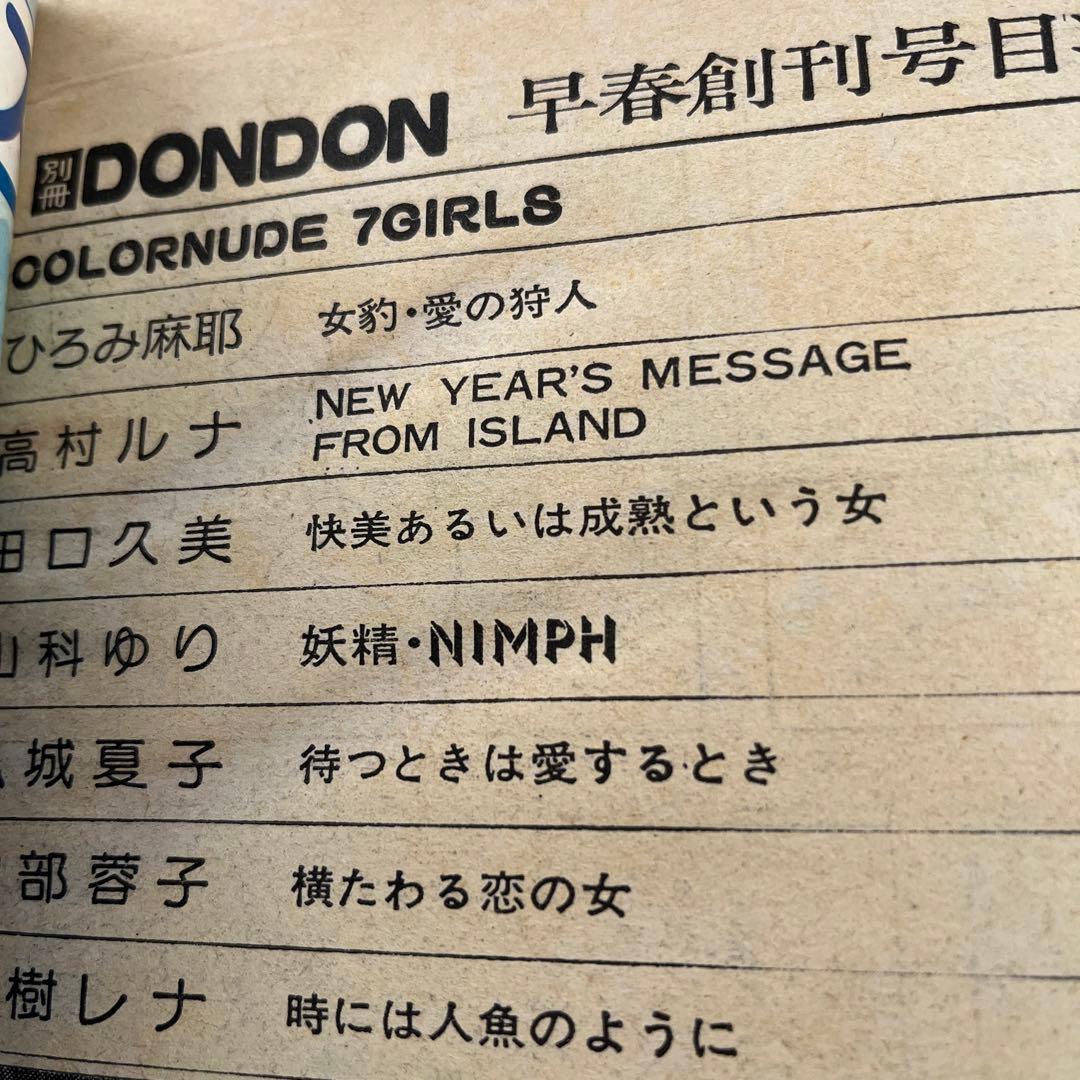 別冊DONDON 早春創刊号目
COLORNUDE 7GIRLS
ひろみ麻耶 女豹・愛の狩人
高村ルナ NEW YEAR'S MESSAGE
FROM ISLAND
田口久美 快美あるいは成熟という女
山科ゆり 妖精・NIMPH
城夏子 待つときは愛するとき
部蓉子 横たわる恋の女
樹レナ 時には人魚のように